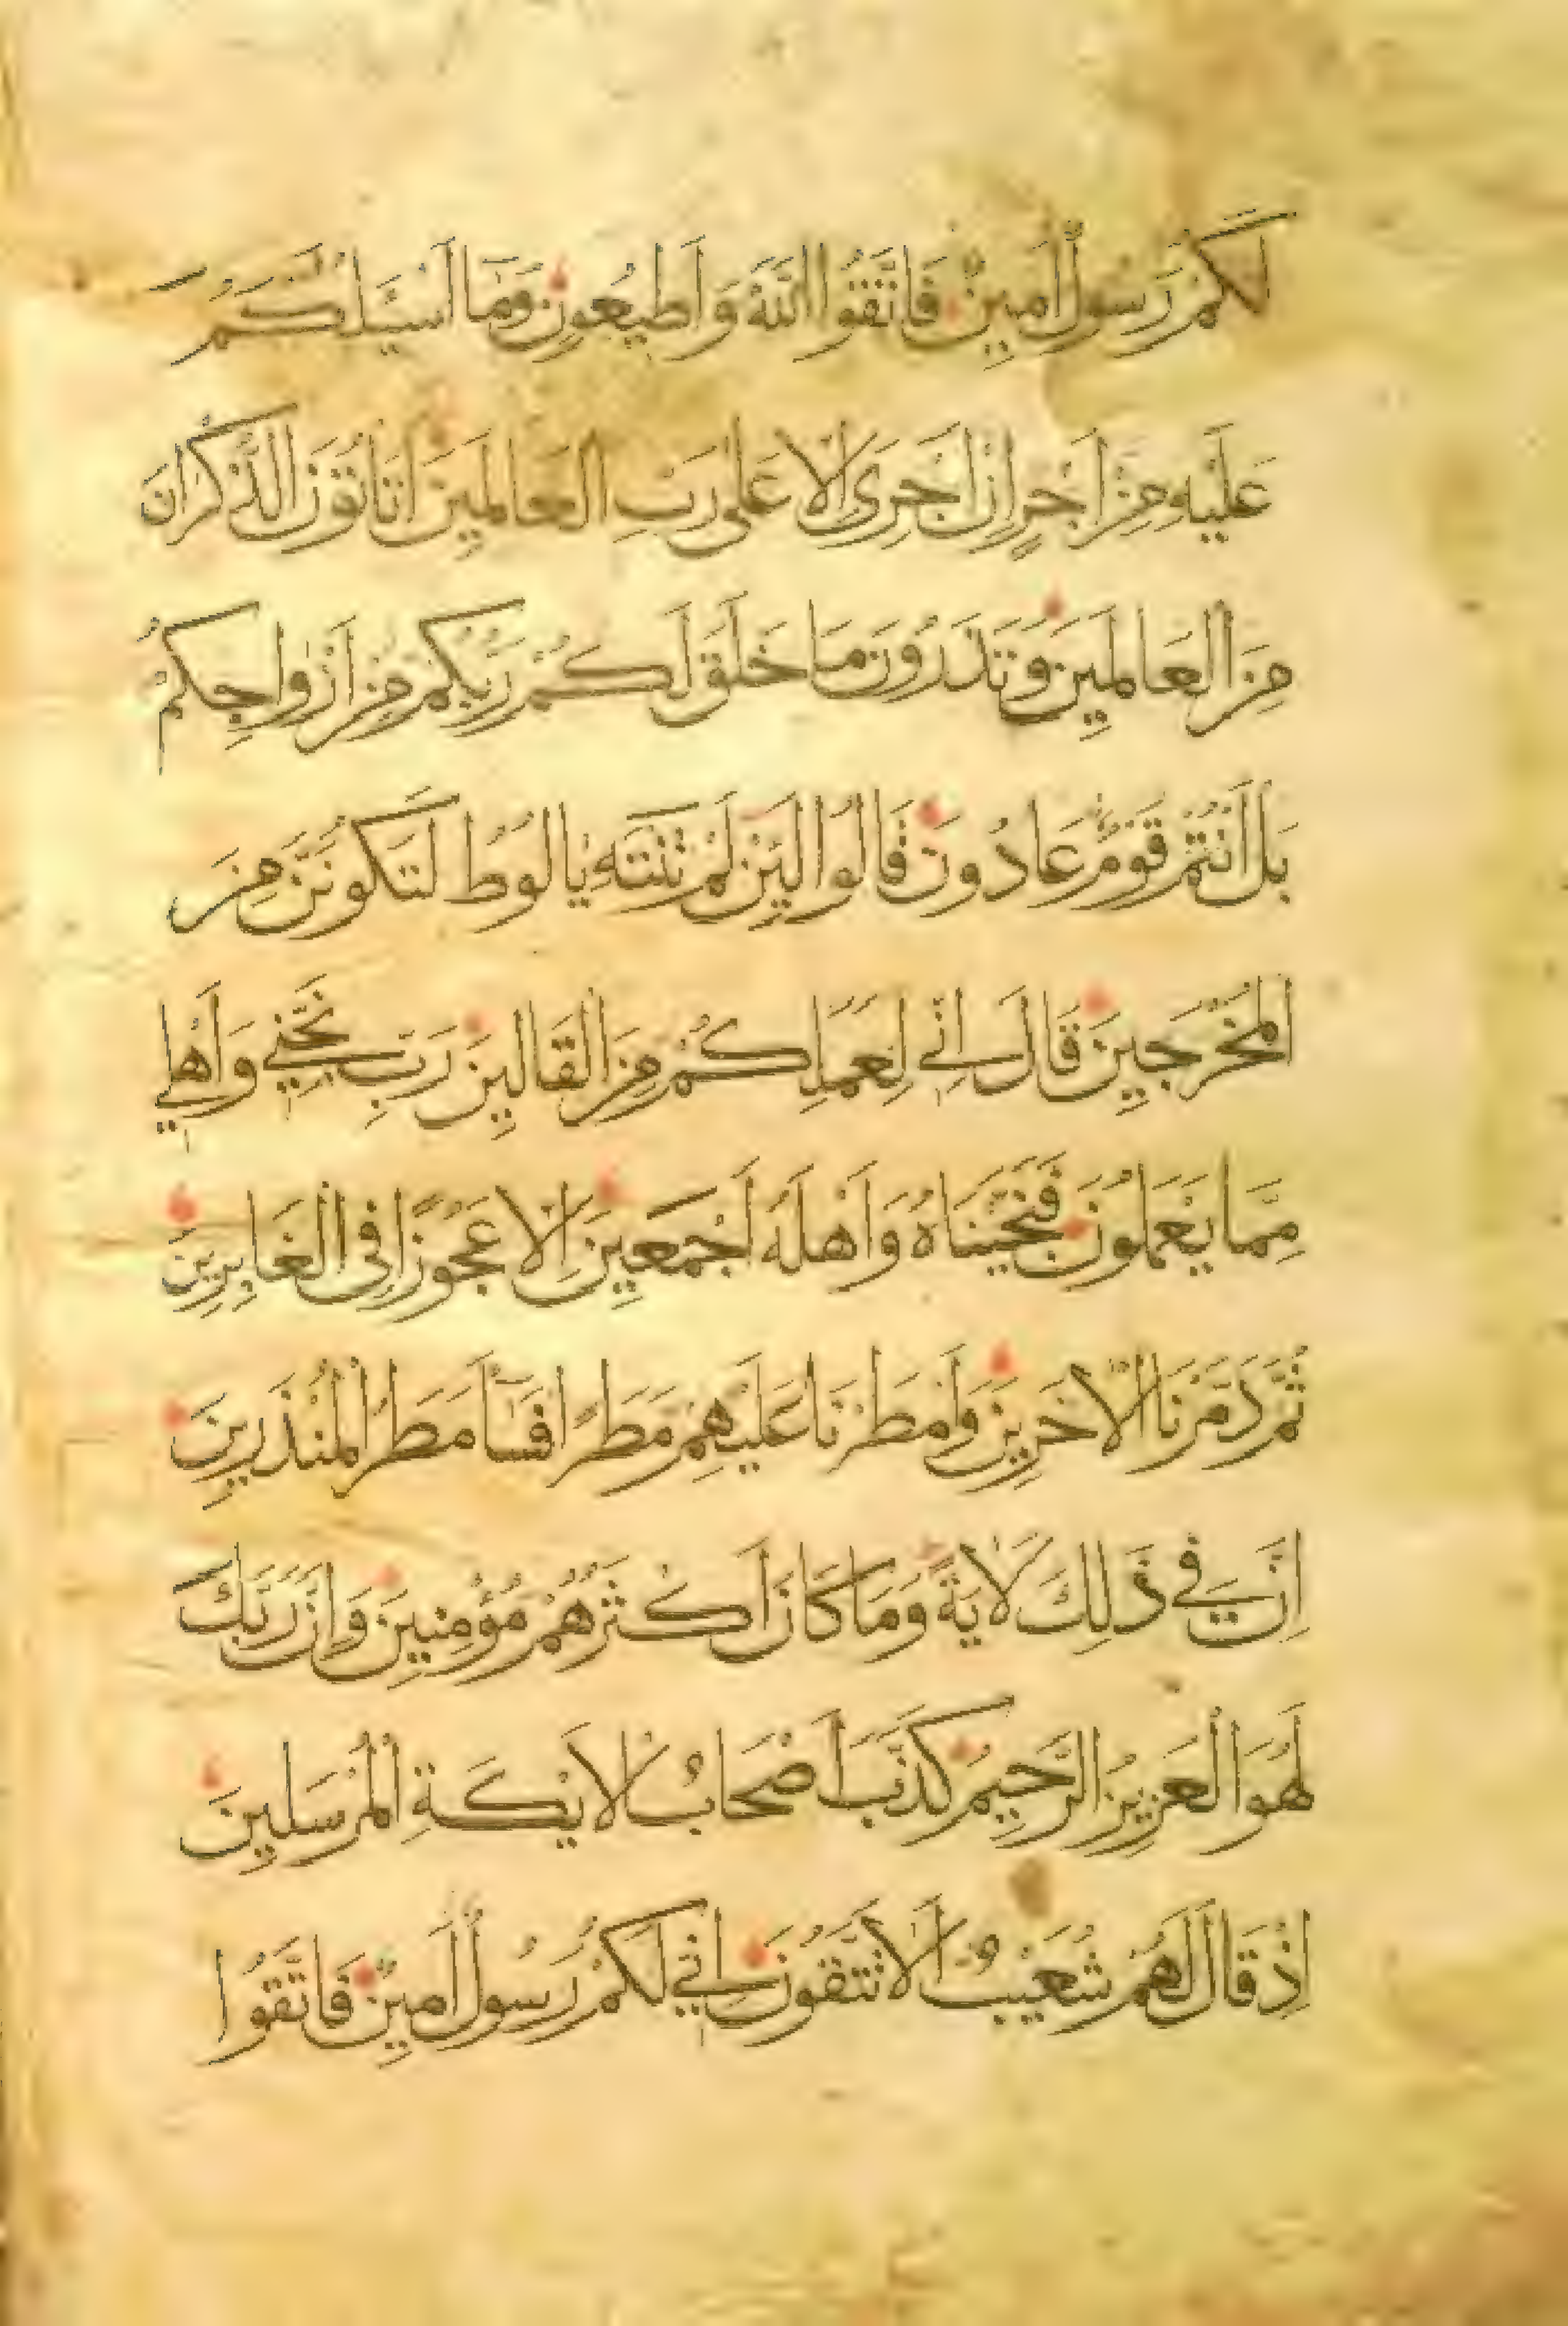 لَكُمْ رَسُولٌ أَمِينٌ فَاتَّقُوا اللَّهَ وَأَطِيعُونِ وَمَا أَسْئَلُكُمْ
عَلَيْهِ مِنْ أَجْرٍ إِنْ أَجْرِىَ إِلَّا عَلَى رَبِّ الْعَالَمِينَ أَتَأْتُونَ الذُّكْرَانَ
مِنَ الْعَالَمِينَ وَتَذَرُونَ مَا خَلَقَ لَكُمْ رَبُّكُمْ مِنْ أَزْوَاجِكُمْ
بَلْ أَنْتُمْ قَوْمٌ عَادُونَ قَالُوا لَئِنْ لَمْ تَنْتَهِ يَا لُوطُ لَتَكُونَنَّ مِنَ
الْمُخْرَجِينَ قَالَ إِنِّي لِعَمَلِكُمْ مِنَ الْقَالِينَ رَبِّ نَجِّنِي وَأَهْلِي
مِمَّا يَعْمَلُونَ فَنَجَّيْنَاهُ وَأَهْلَهُ أَجْمَعِينَ إِلَّا عَجُوزًا فِي الْغَابِرِينَ
ثُمَّ دَمَّرْنَا الْآخَرِينَ وَأَمْطَرْنَا عَلَيْهِمْ مَطَرًا فَسَاءَ مَطَرُ الْمُنْذَرِينَ
إِنَّ فِي ذَلِكَ لَآيَةً وَمَا كَانَ أَكْثَرُهُمْ مُؤْمِنِينَ وَإِنَّ رَبَّكَ
لَهُوَ الْعَزِيزُ الرَّحِيمُ كَذَّبَ أَصْحَابُ الْأَيْكَةِ الْمُرْسَلِينَ
إِذْ قَالَ لَهُمْ شُعَيْبٌ أَلَا تَتَّقُونَ إِنِّي لَكُمْ رَسُولٌ أَمِينٌ فَاتَّقُوا